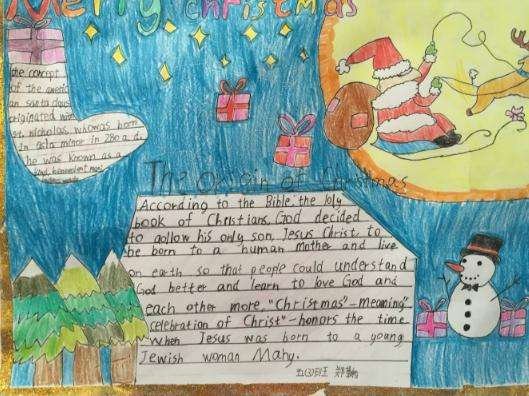 Merry christmas
the concept
of the americ
an santa claus
originated with
st. nicholas, whowas born
in asia minor in 280 a.d.
he was known as a
kind, benevolent man
The origin of Christmas
According to the Bible. the loly
book of Christians, God decided
to aollow his only son, Jesus Christ, to
be born to a human mother and live
on earth so that people could understand
God better and learn to love God and
each other more, "Christmas"-meaning"
celebration of Christ"-honors the time
when Jesus was born to a young
Jewish woman Many.